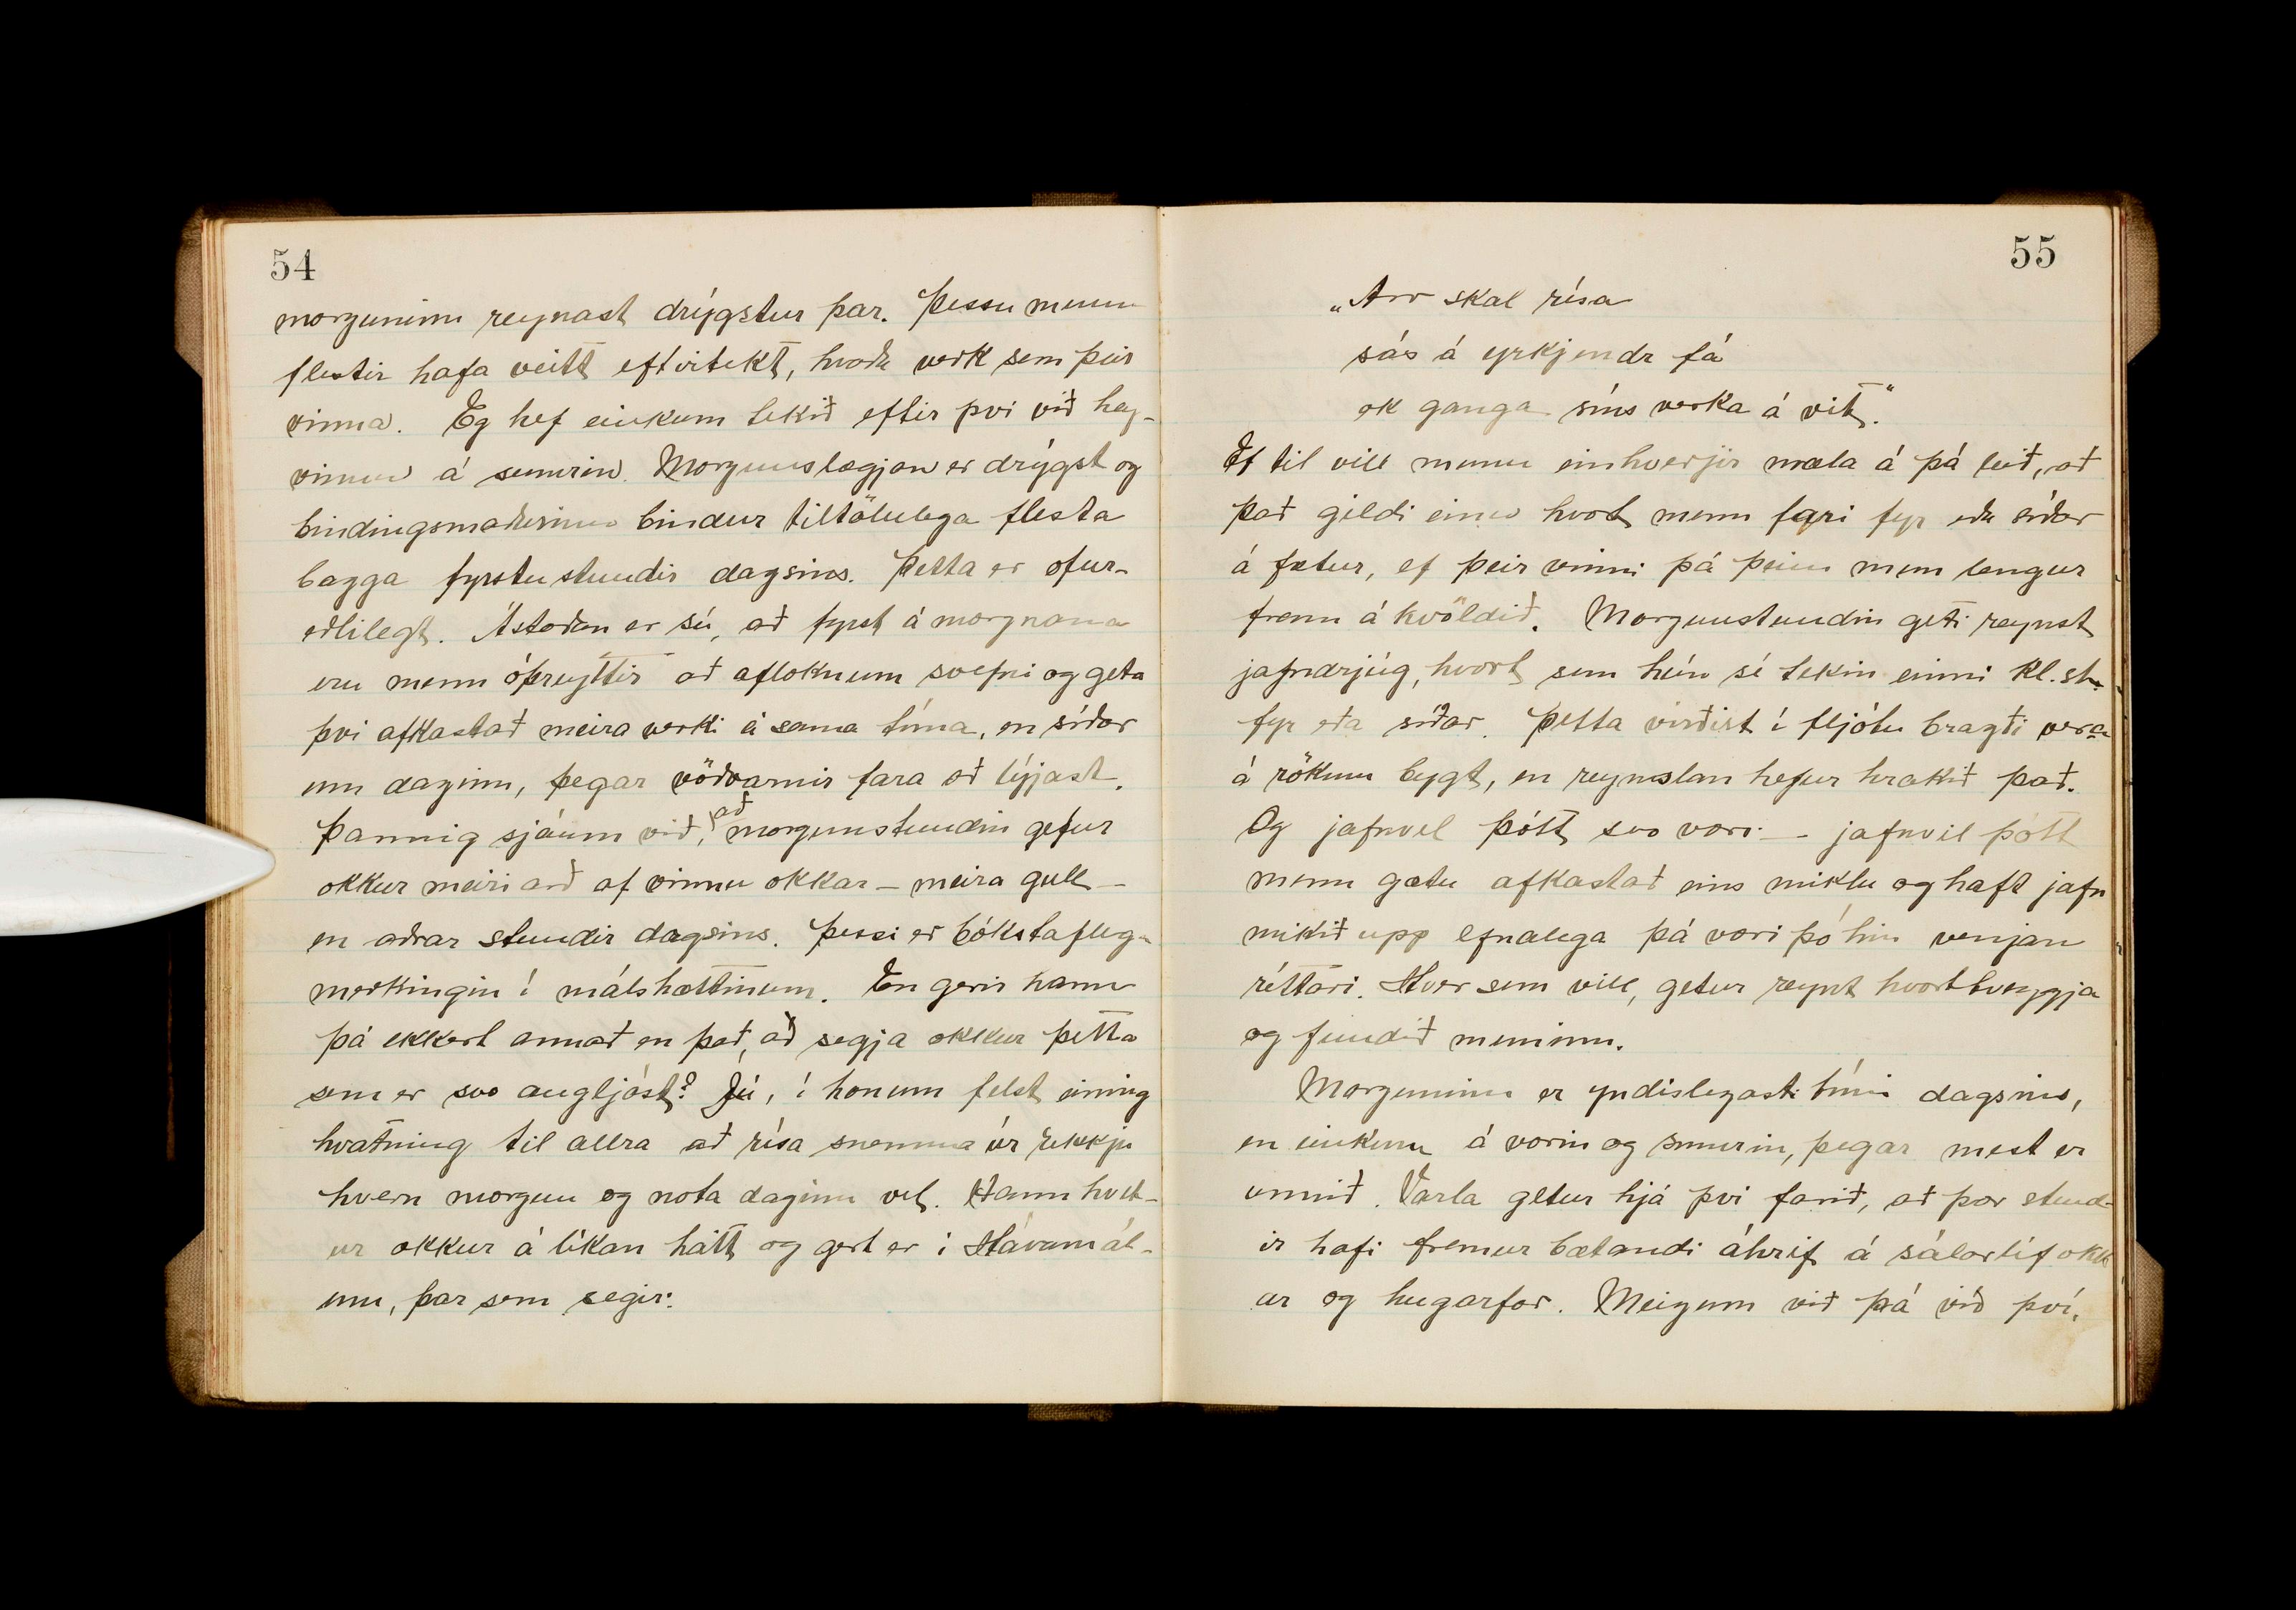 54
morguninn reynast drýgstur þar. Þessu munu
flestir hafa veitt eftirtekt, hvaða verk sem þeir
vinna. Eg hef einkum tekið eftir því við hey-
vinnu á sumrin. Morgunslægjan er drýgst og
bindingsmaðurinn bindur tiltölulega flesta
bagga fyrstu stundir dagsins. Þetta er ofur-
eðlilegt. Ástæðan er sú, að fyrst á morgnana
eru menn óþreyttir að afloknum svefni og geta
því afkastað meira verki á sama tíma, en síðar
um daginn, þegar vöðvarnir fara að lýjast.
Þannig sjáum við, að morgunstundin gefur
okkur meiri arð af vinnu okkar – meira gull –
en aðrar stundir dagsins. Þessi er bókstafleg-
merkingin í málshættinum. En gerir hann
þá ekkert annað en það, að segja okkur þetta
sem er svo augljóst? Jú, í honum felst einnig
hvatning til allra að rísa snemma úr rekkju
hvern morgun og nota daginn vel. Hann hvet-
ur okkur á líkan hátt og gert er í Hávamál-
um, þar sem segir:
55
„Ár skal rísa
sás á yrkjendr fá
ok ganga síns verka á vit".
Ef til vill munu einhverjir mæla á þá leið, að
það gildi einu hvort menn fari fyr eða síðar
á fætur, ef þeir vinni þá þeim mun lengur
fram á kvöldið. Morgunstundin geti reynst
jafndrjúg, hvort sem hún sé tekin einni kl.st.
fyr eða síðar. Þetta virðist í fljótu bragði vera
á rökum bygt, en reynslan hefur hrakið það.
Og jafnvel þótt svo væri – jafnvel þótt
menn gætu afkastað eins miklu og haft jafn
mikið upp efnalega þá væri þó hin venjan
réttari. Hver sem vill, getur reynt hvorttveggja
og fundið muninn.
Morguninn er yndislegasti tími dagsins,
en einkum á vorin og sumrin, þegar mest er
unnið. Varla getur hjá því farið, að þær stund-
ir hafi fremur bætandi áhrif á sálarlíf okk
ar og hugarfar. Meigum við þá við því,